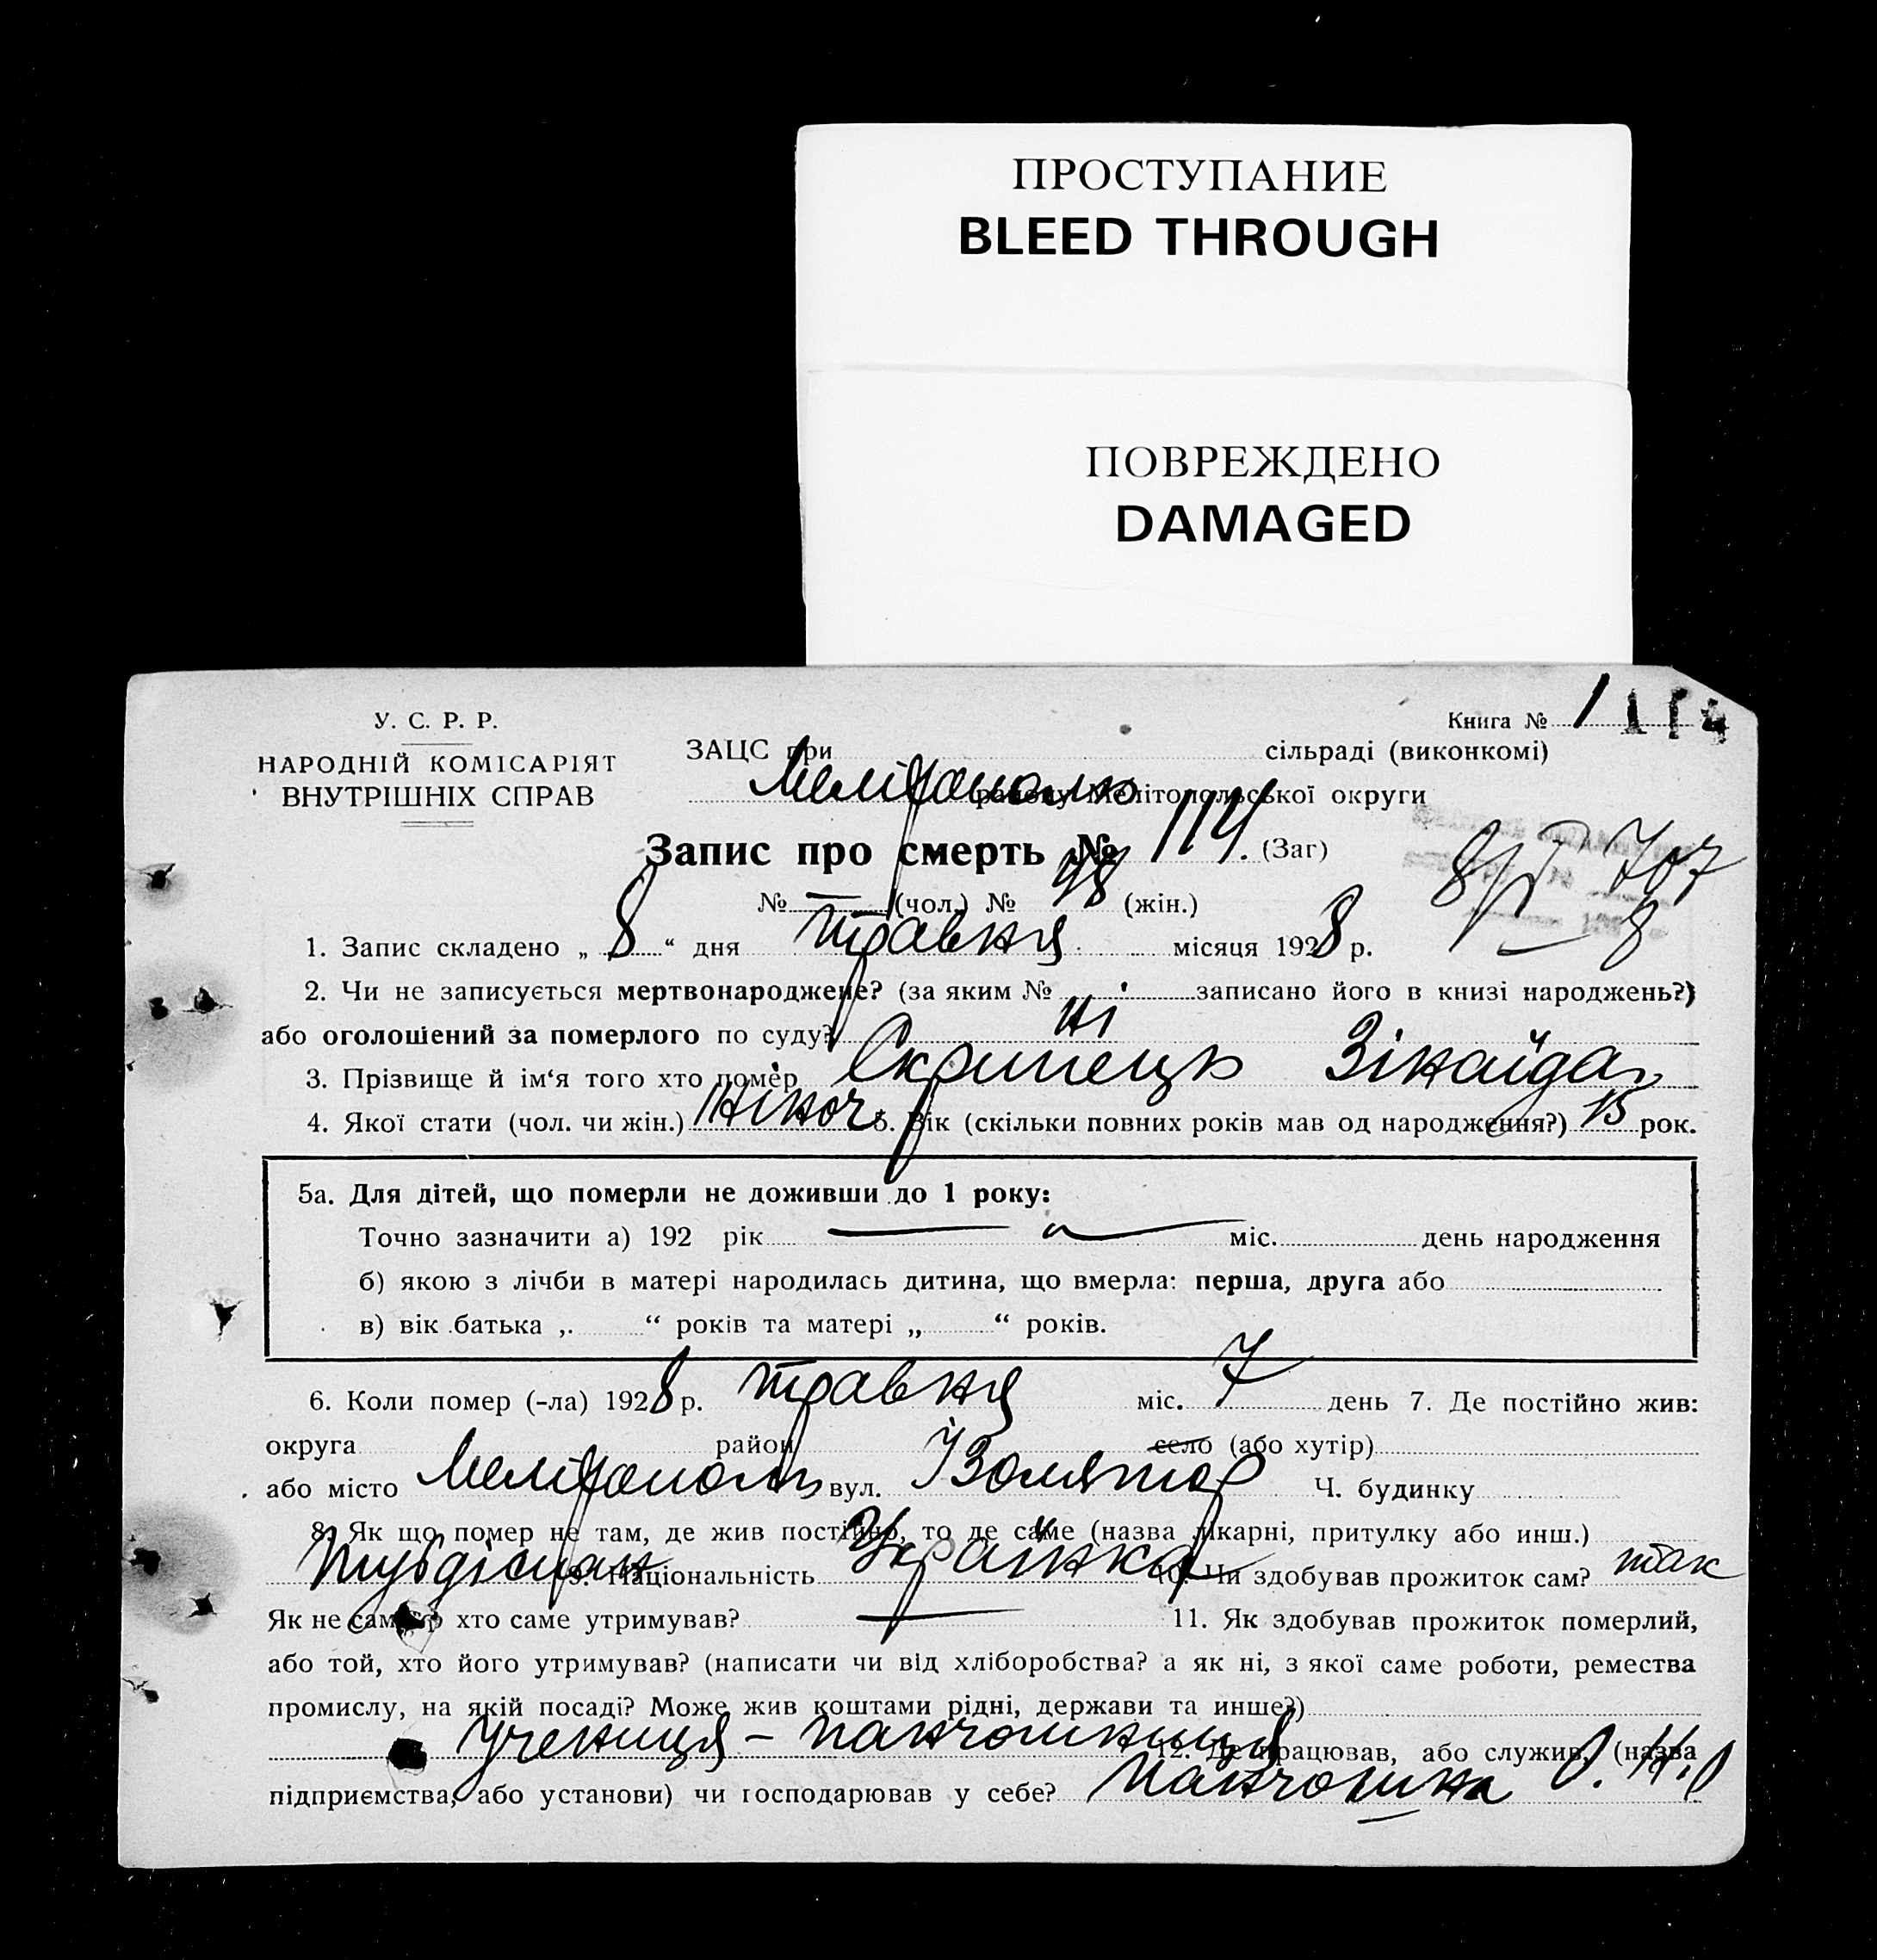 ПРОСТУПАНИЕ
BLEED THROUGH
ПОВРЕЖДЕНО
DAMAGED
У. С. Р. Р.
НАРОДНІЙ КОМІСАРІЯТ
ВНУТРІШНІХ СПРАВ
Книга № 1 114
ЗАЦС при сільраді (виконкомі)
Мелітополю району Мелітопольської округи
Запис про смерть № 114. (Заг)
№ — (чол.) № 48 (жін.)
1. Запис складено „ 8 “ дня травня місяця 1928 р.
2. Чи не записується мертвонароджене? (за яким № записано його в книзі народжень?)
або оголошений за померлого по суду? Ні
3. Прізвище й ім‘я того хто помер Скрипець Зінаїда
4. Якої стати (чол. чи жін.) Жіноч 5. Вік (скільки повних років мав од народження?) 15 рок.
5а. Для дітей, що померли не доживши до 1 року:
Точно зазначити а) 192 рік — міс. день народження
б) якою з лічби в матері народилась дитина, що вмерла: перша, друга або
в) вік батька „ “ років та матері „ “ років.
6. Коли помер (-ла) 1928 р. травня міс. 7 день 7. Де постійно жив:
округа район село (або хутір)
або місто Мелітополь вул. Ізолятор Ч. будинку
8. Як що помер не там, де жив постійно, то де саме (назва лікарні, притулку або инш.)
Тубдіспан 9. Національність Українка 10. Чи здобував прожиток сам? так
Як не сам, то хто саме утримував? — 11. Як здобував прожиток померлий,
або той, хто його утримував? (написати чи від хліборобства? а як ні, з якої саме роботи, ремества
промислу, на якій посаді? Може жив коштами рідні, держави та инше?)
Учениця – панчошниця 12. Де працював, або служив, (назва
підприємства, або установи) чи господарював у себе? Панчошна